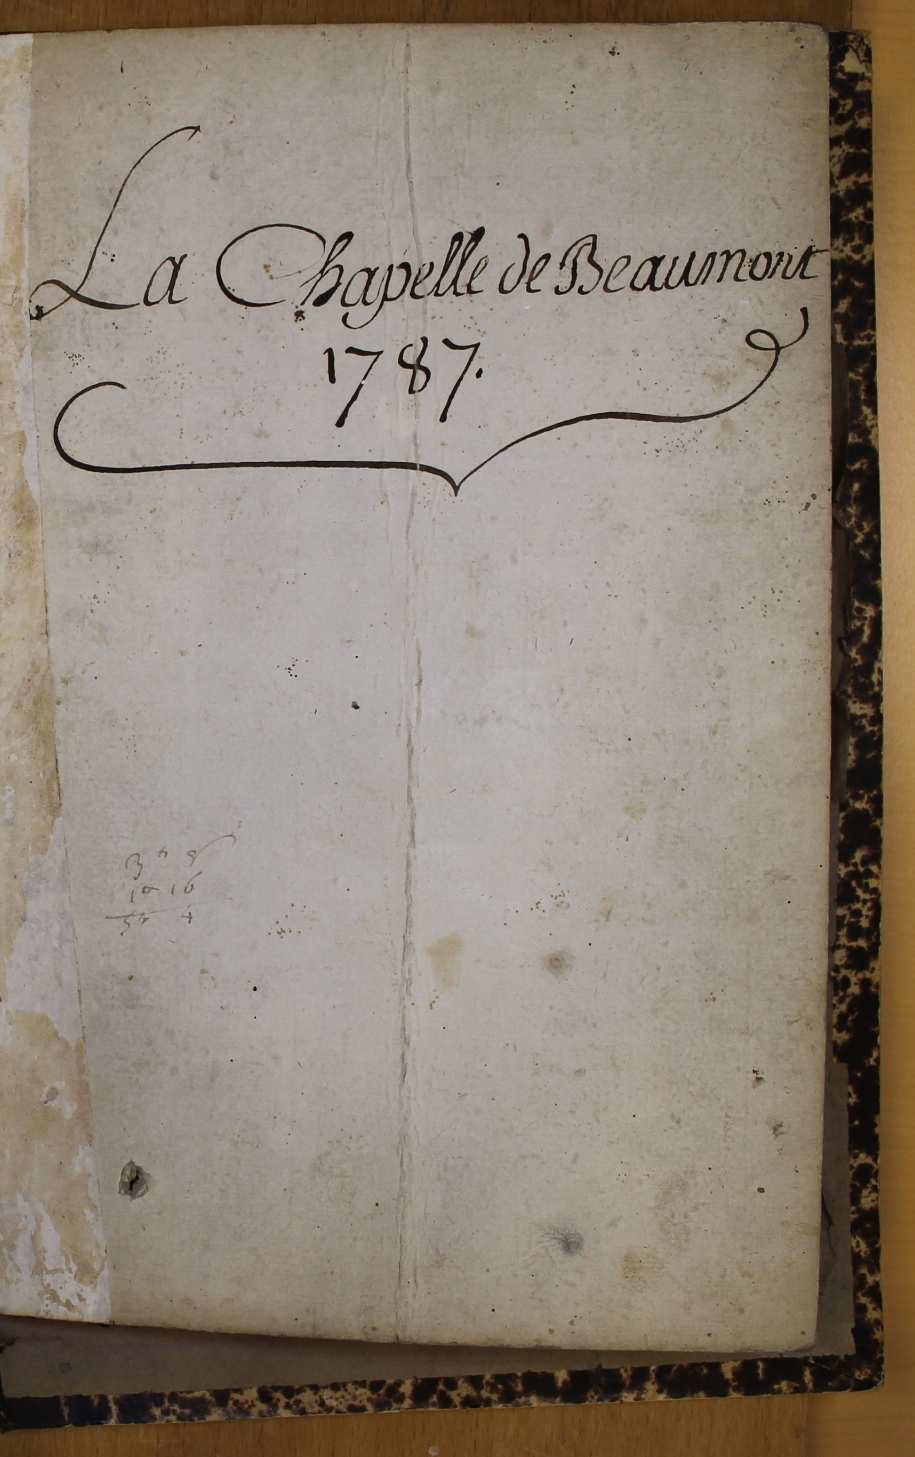 La Chapelle de Beaumont
1787.
10 16